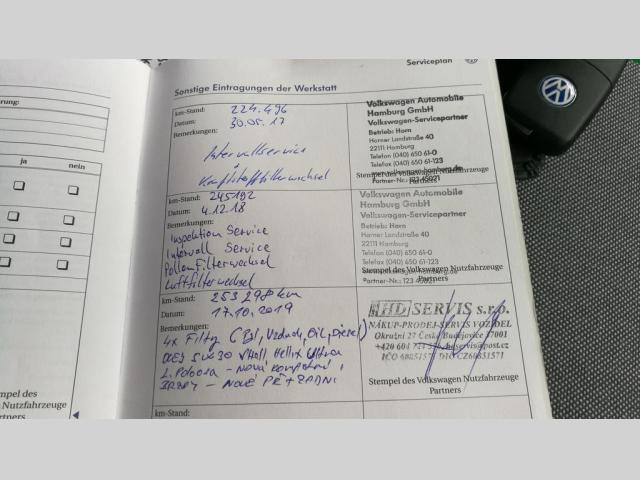 Serviceplan
Sonstige Eintragungen der Werkstatt
rung:
ja nein
km-Stand: 224.496
Datum: 30.05.17
Bemerkungen:
Intervallservice
Kraftstofffilterwechsel
Volkswagen Automobile
Hamburg GmbH
Volkswagen-Servicepartner
Betrieb: Horn
Horner Landstraße 40
22111 Hamburg
Telefon (040) 650 61-0
Telefax (040) 650 61-123
www.volkswagen-hamburg.de
Stempel des Volkswagen Nutzfahrzeuge
Partner-Nr.: 123 45021
Partners
km-Stand: 245192
Datum: 4.12.18
Bemerkungen:
Inspektion Service
Intervall Service
Pollenfilterwechsel
Luftfilterwechsel
Volkswagen Automobile
Hamburg GmbH
Volkswagen-Servicepartner
Betrieb: Horn
Horner Landstraße 40
22111 Hamburg
Telefon (040) 650 61-0
Telefax (040) 650 61-123
www.volkswagen-hamburg.de
Stempel des Volkswagen Nutzfahrzeuge
Partner-Nr.: 123 45021
Partners
km-Stand: 253 298 km
Datum: 17.10.2019
Bemerkungen:
4x Filtry (Pyl, Vzduch, Oil, Diesel)
5W30 Shell Helix Ultra
nová kompletní,
BRZDY - NOVÉ PŘ + ZADNI
HD SERVIS s.r.o.
NÁKUP-PRODEJ-SERVIS VOZIDEL
Okružní 27 České Budějovice 37001
+420 604
IČO 6
DIČ CZ6
Stempel des Volkswagen Nutzfahrzeuge
Partners
km-Stand:
mpel des
Nutzfahrzeuge
Partners